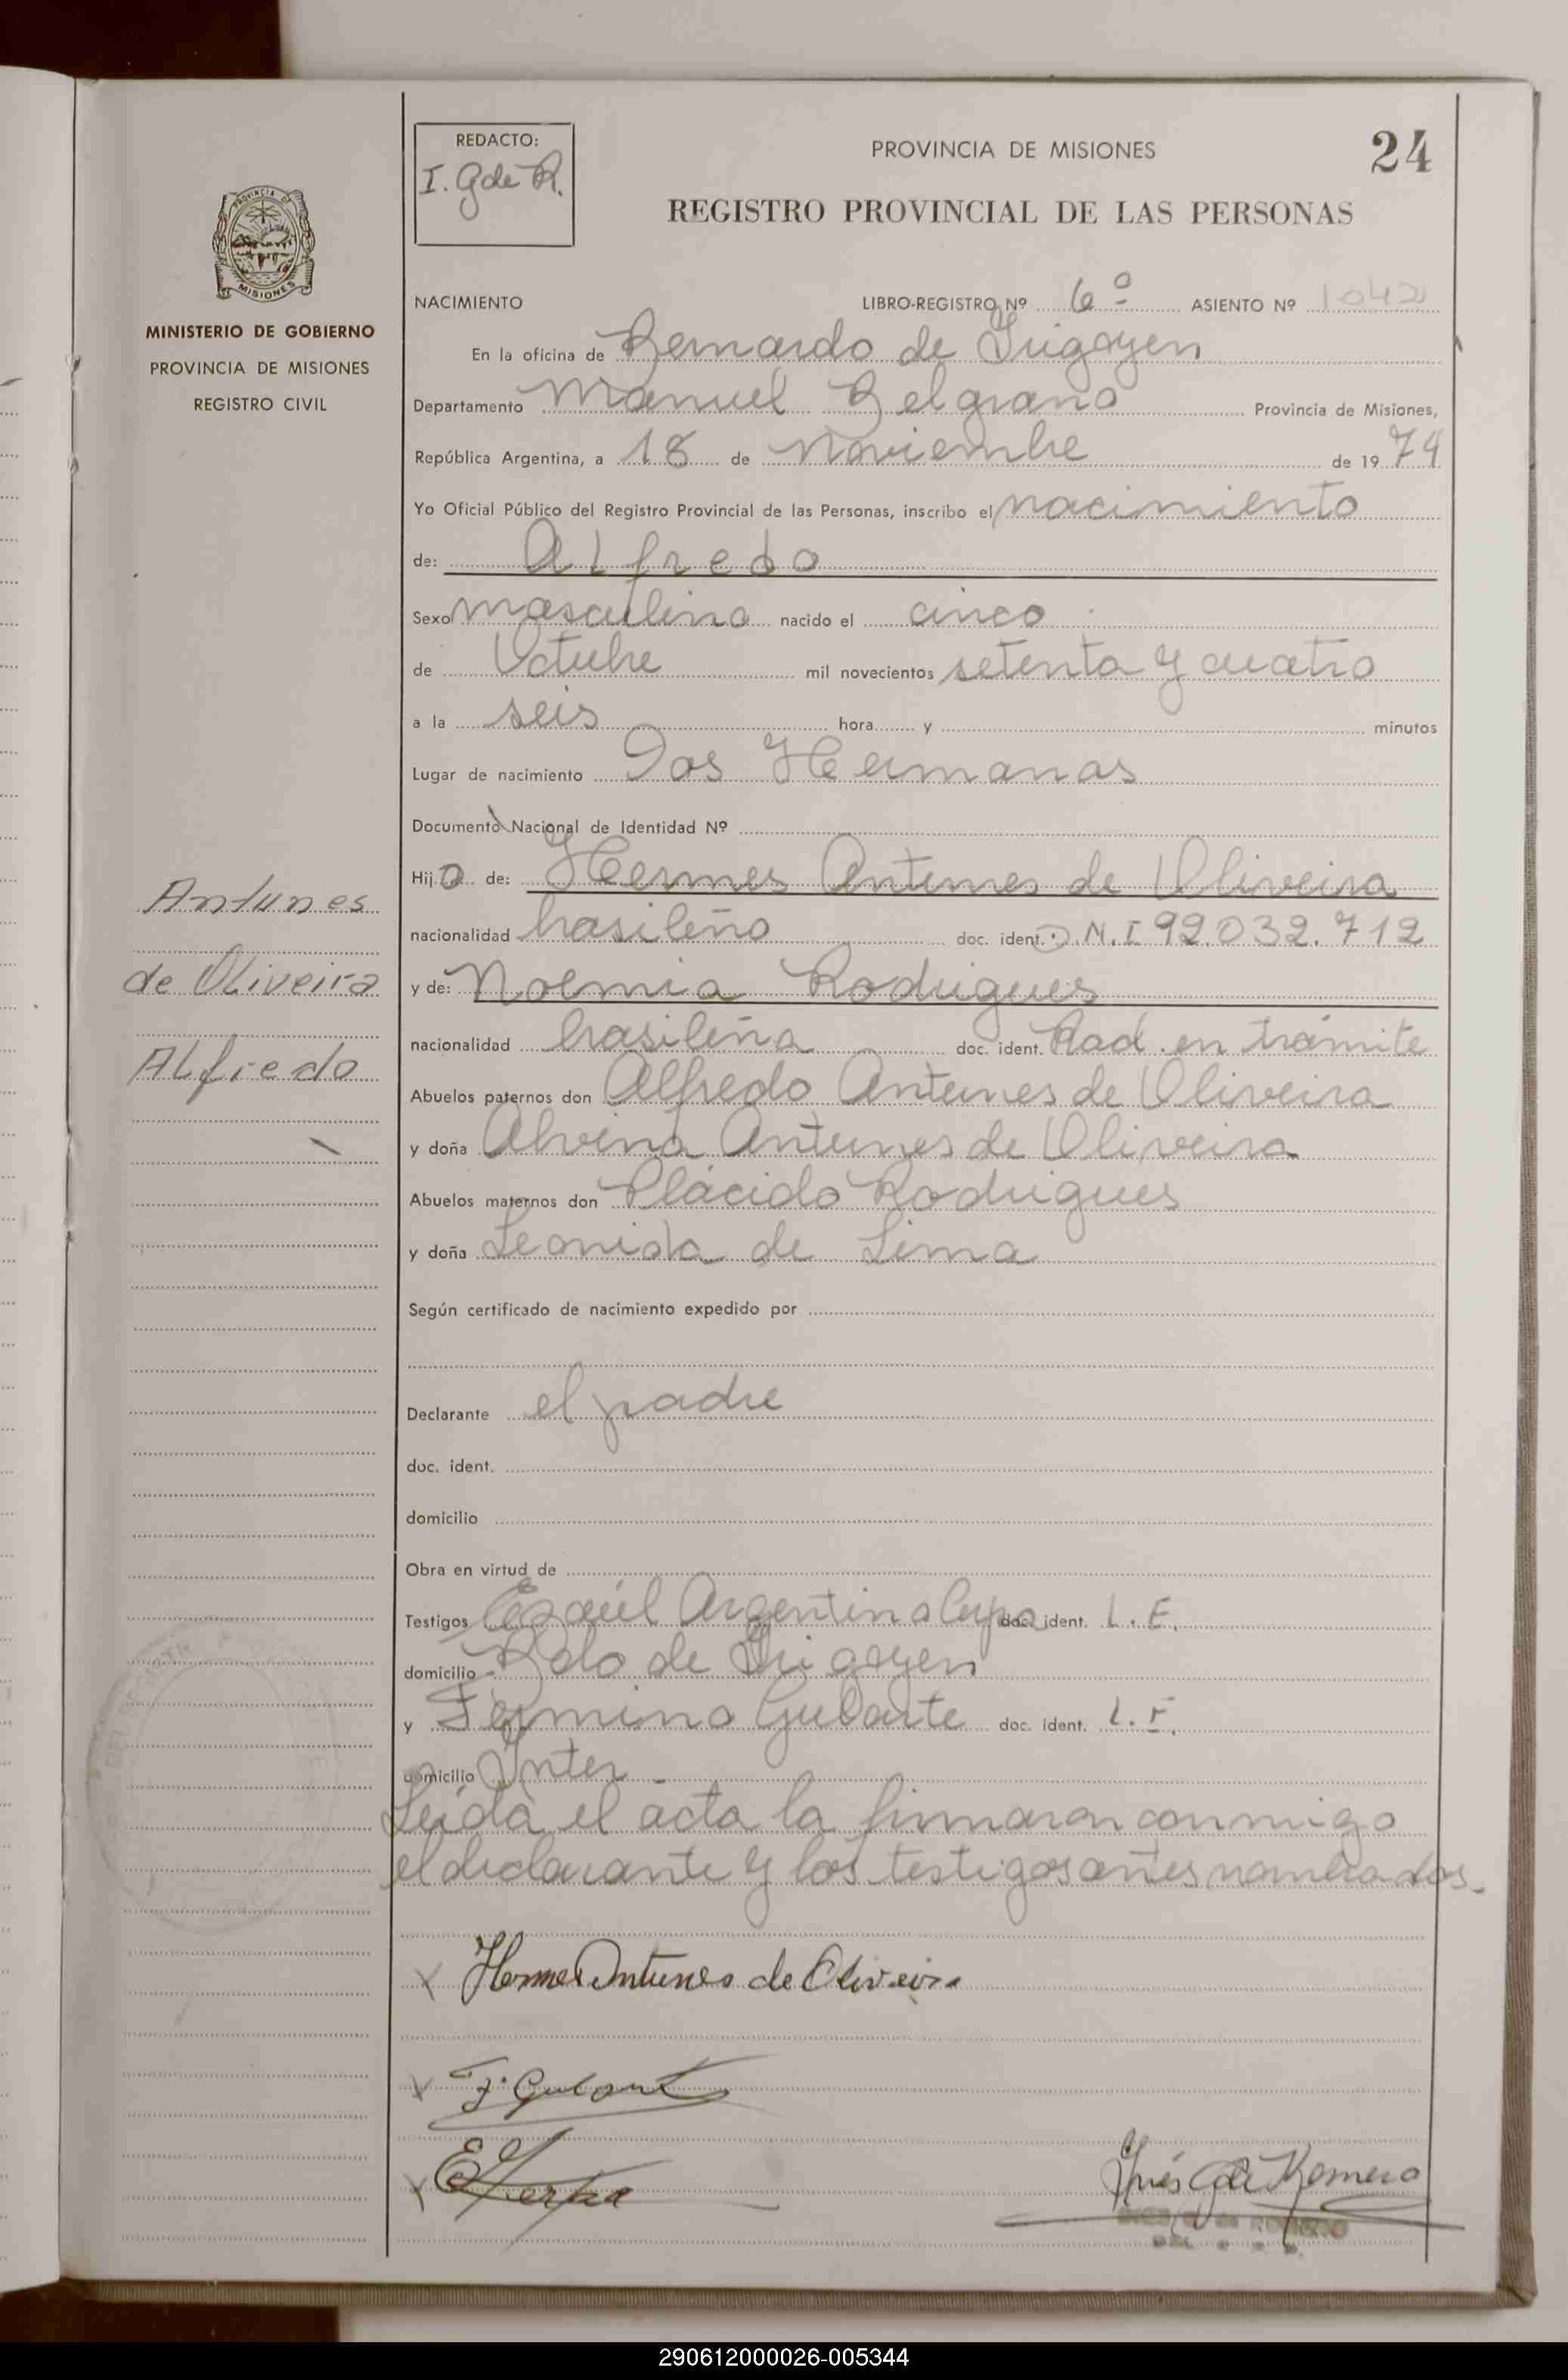 MINISTERIO DE GOBIERNO
PROVINCIA DE MISIONES
REGISTRO CIVIL
Antunes
de Oliveira
Alfredo
REDACTO:
I. G de R.
PROVINCIA DE MISIONES
24
REGISTRO PROVINCIAL DE LAS PERSONAS
NACIMIENTO LIBRO-REGISTRO Nº 6º ASIENTO Nº 1042
En la oficina de Bernardo de Irigoyen
Departamento Manuel Belgrano Provincia de Misiones,
República Argentina, a 18 de Noviembre de 1974
Yo Oficial Público del Registro Provincial de las Personas, inscribo el nacimiento
de: Alfredo
Sexo masculino nacido el cinco
de Octubre mil novecientos setenta y cuatro
a la seis hora y minutos
Lugar de nacimiento Dos Hermanas
Documento Nacional de Identidad Nº
Hijo de: Hermes Antunes de Oliveira
nacionalidad brasileño doc. ident. D.N.I 92.032.712
y de: Noemia Rodrigues
nacionalidad brasileña doc. ident. Rad. en trámite
Abuelos paternos don Alfredo Antunes de Oliveira
y doña Alvina Antunes de Oliveira
Abuelos maternos don Plácido Rodrigues
y doña Leonida de Lima
Según certificado de nacimiento expedido por
Declarante el padre
doc. ident.
domicilio
Obra en virtud de
Testigos Esaúl Argentino doc. ident. L.E.
domicilio Bdo de Irigoyen
y Fermino Gularte doc. ident. L.E.
domicilio Inter
Leída el acta la firmaron conmigo
el declarante y los testigos antes nombrados.
Hermes Antunes de Oliveira
F. Gularte
Inés G de Romero
290612000026-005344